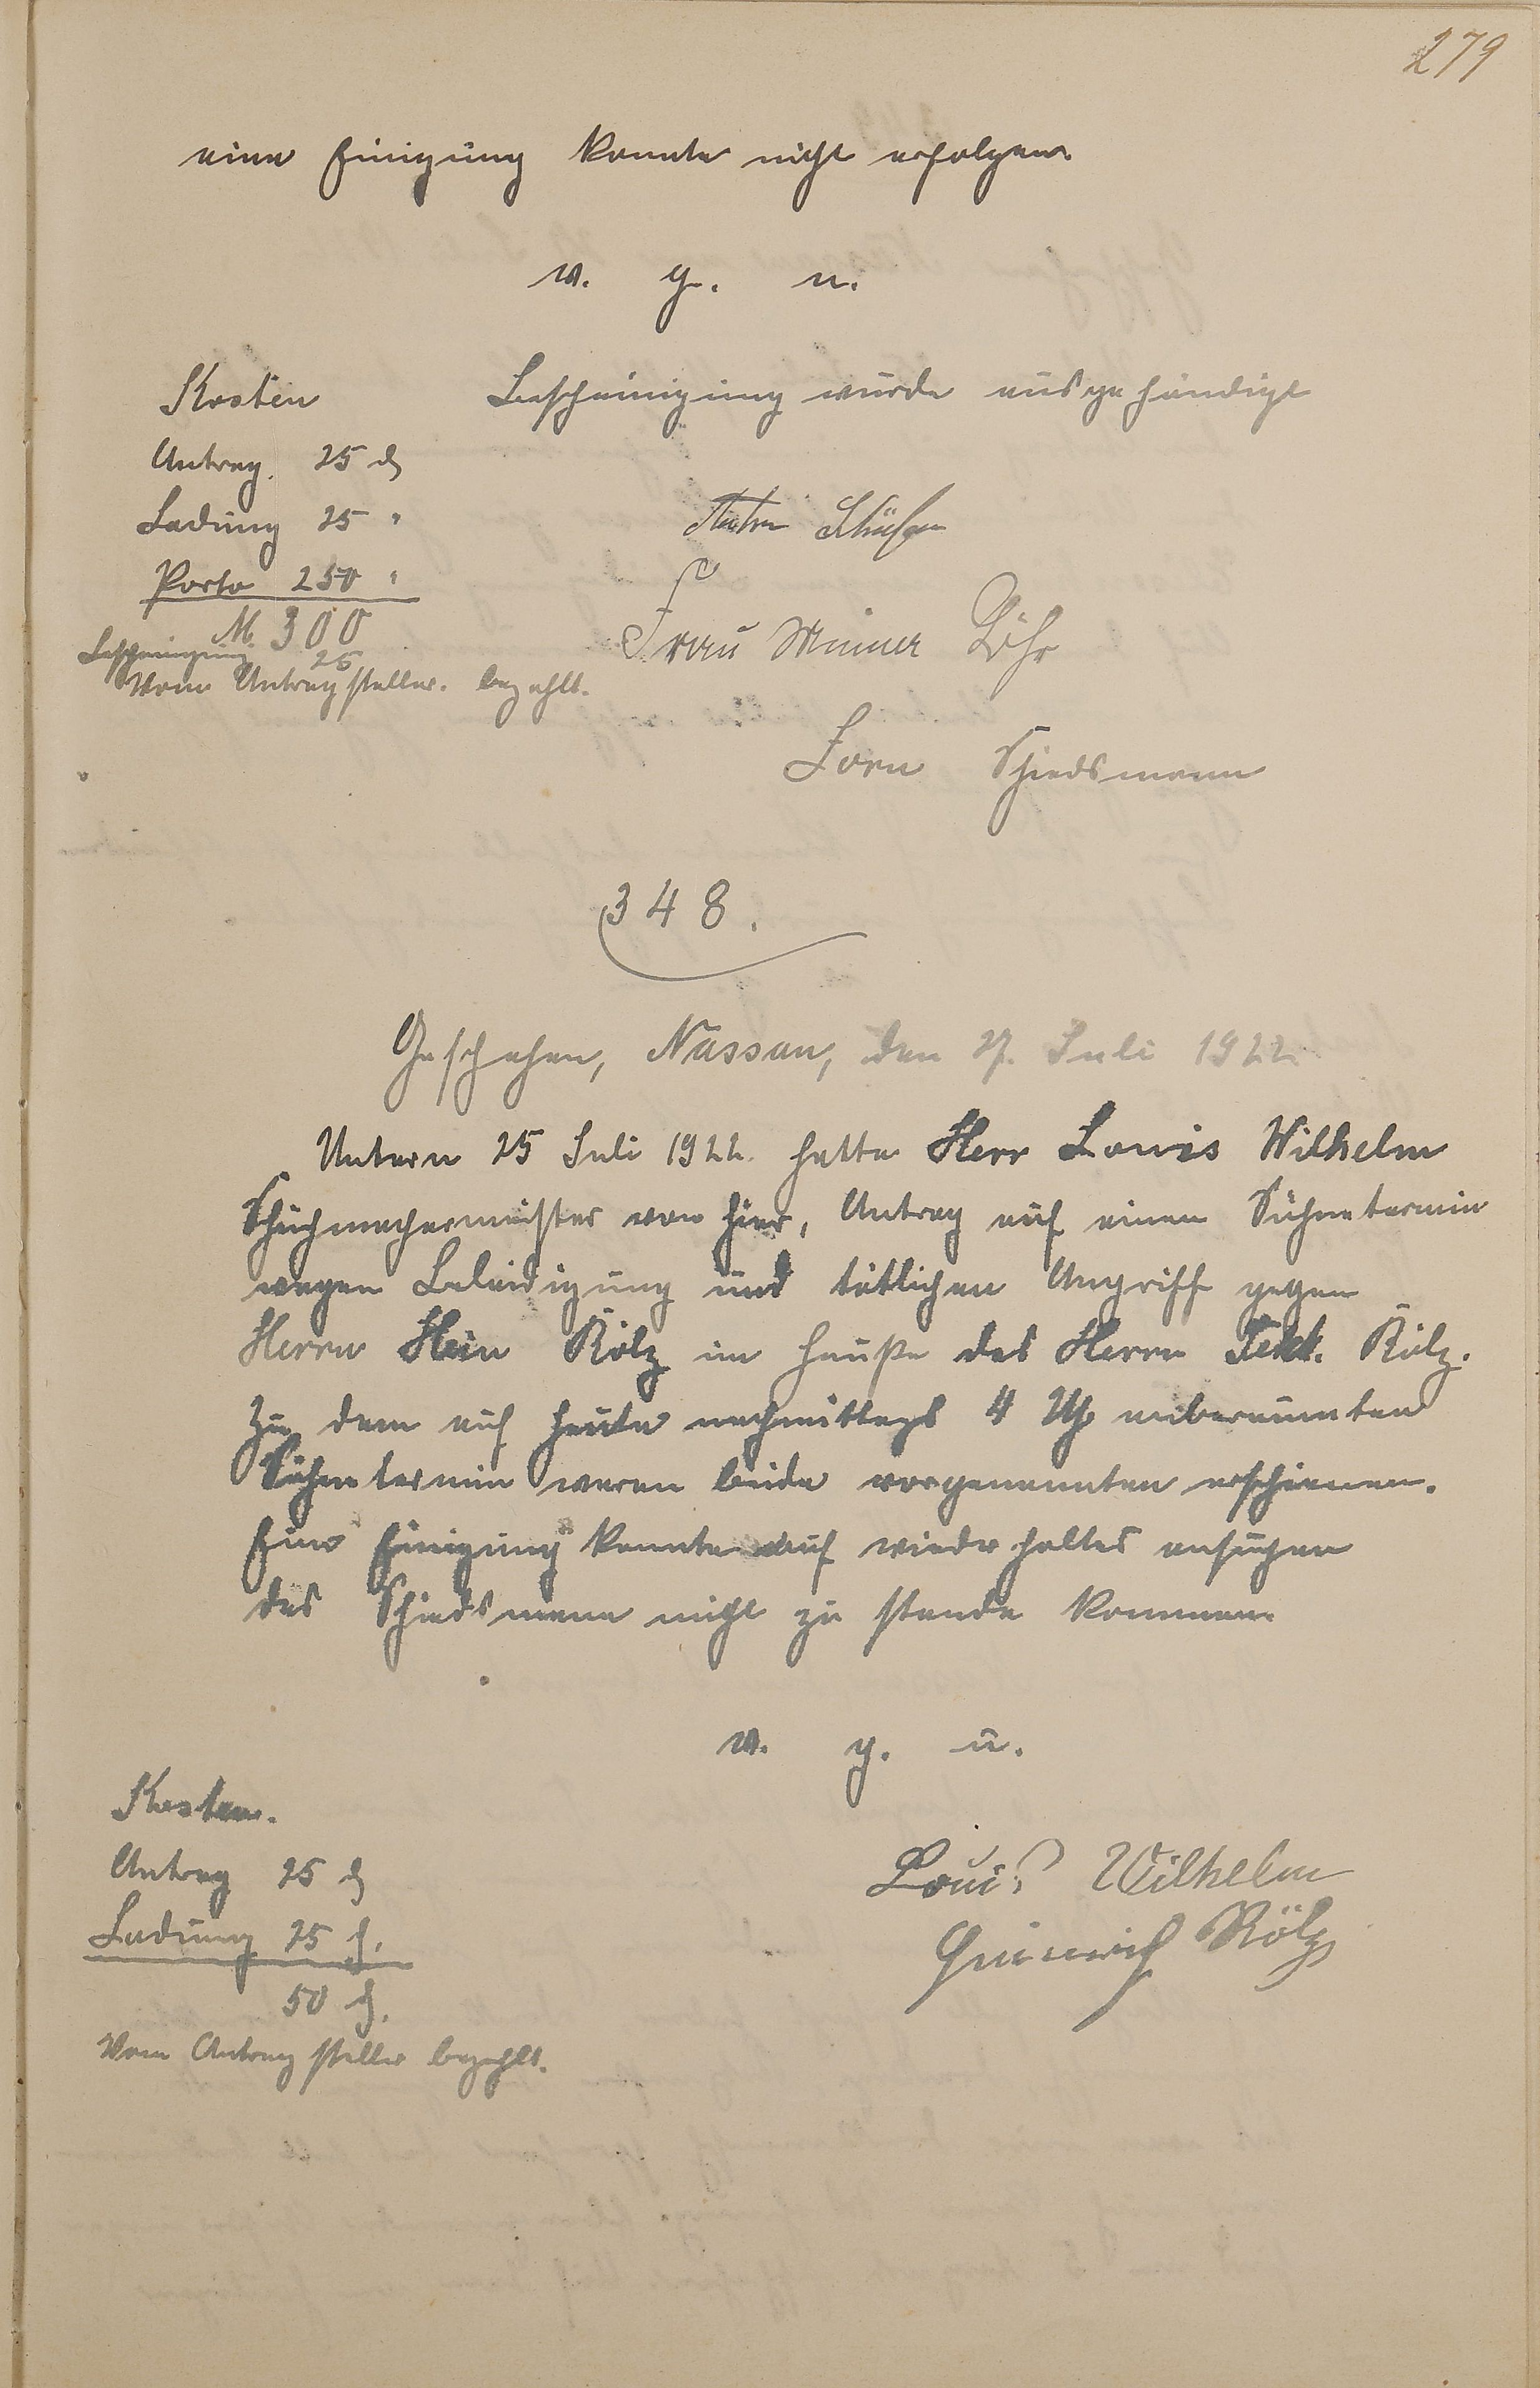 279
eine Einigung konnte nicht erfolgen.
v. g. u.
Bescheinigung wurde ausgehändigt
Kosten
Antrag. 25 ₰
Ladung 25 "
Porto 250 "
M. 300
Bescheinigung 25
Vom Antragsteller. bezahlt.
Anton
Frau Minna Löhr
Zorn Schiedsmann
348.
Geschehen, Nassau, den 27. Juli 1922
Unterm 25 Juli 1922. hatte Herr Louis Wilhelm
Schuhmachermeister von hier, Antrag auf einen Sühnetermin
wegen Beleidigung und tätlichen Angriff gegen
Herrn Hein Rölz im Hauße des Herrn Rölz.
Zu dem auf heute nachmittags 4 Uhr anberaumten
Sühnetermin waren beide vorgenannten erschienen.
Eine Einigung konnte auf wiederholtes ansuchen
des Schiedsmann nicht zu stande kommen.
v. g. u.
Kosten.
Antrag 25 ₰
Ladung 25 ₰.
50 ₰.
Vom Antragsteller bezahlt.
Louis Wilhelm
Heinrich Rölz